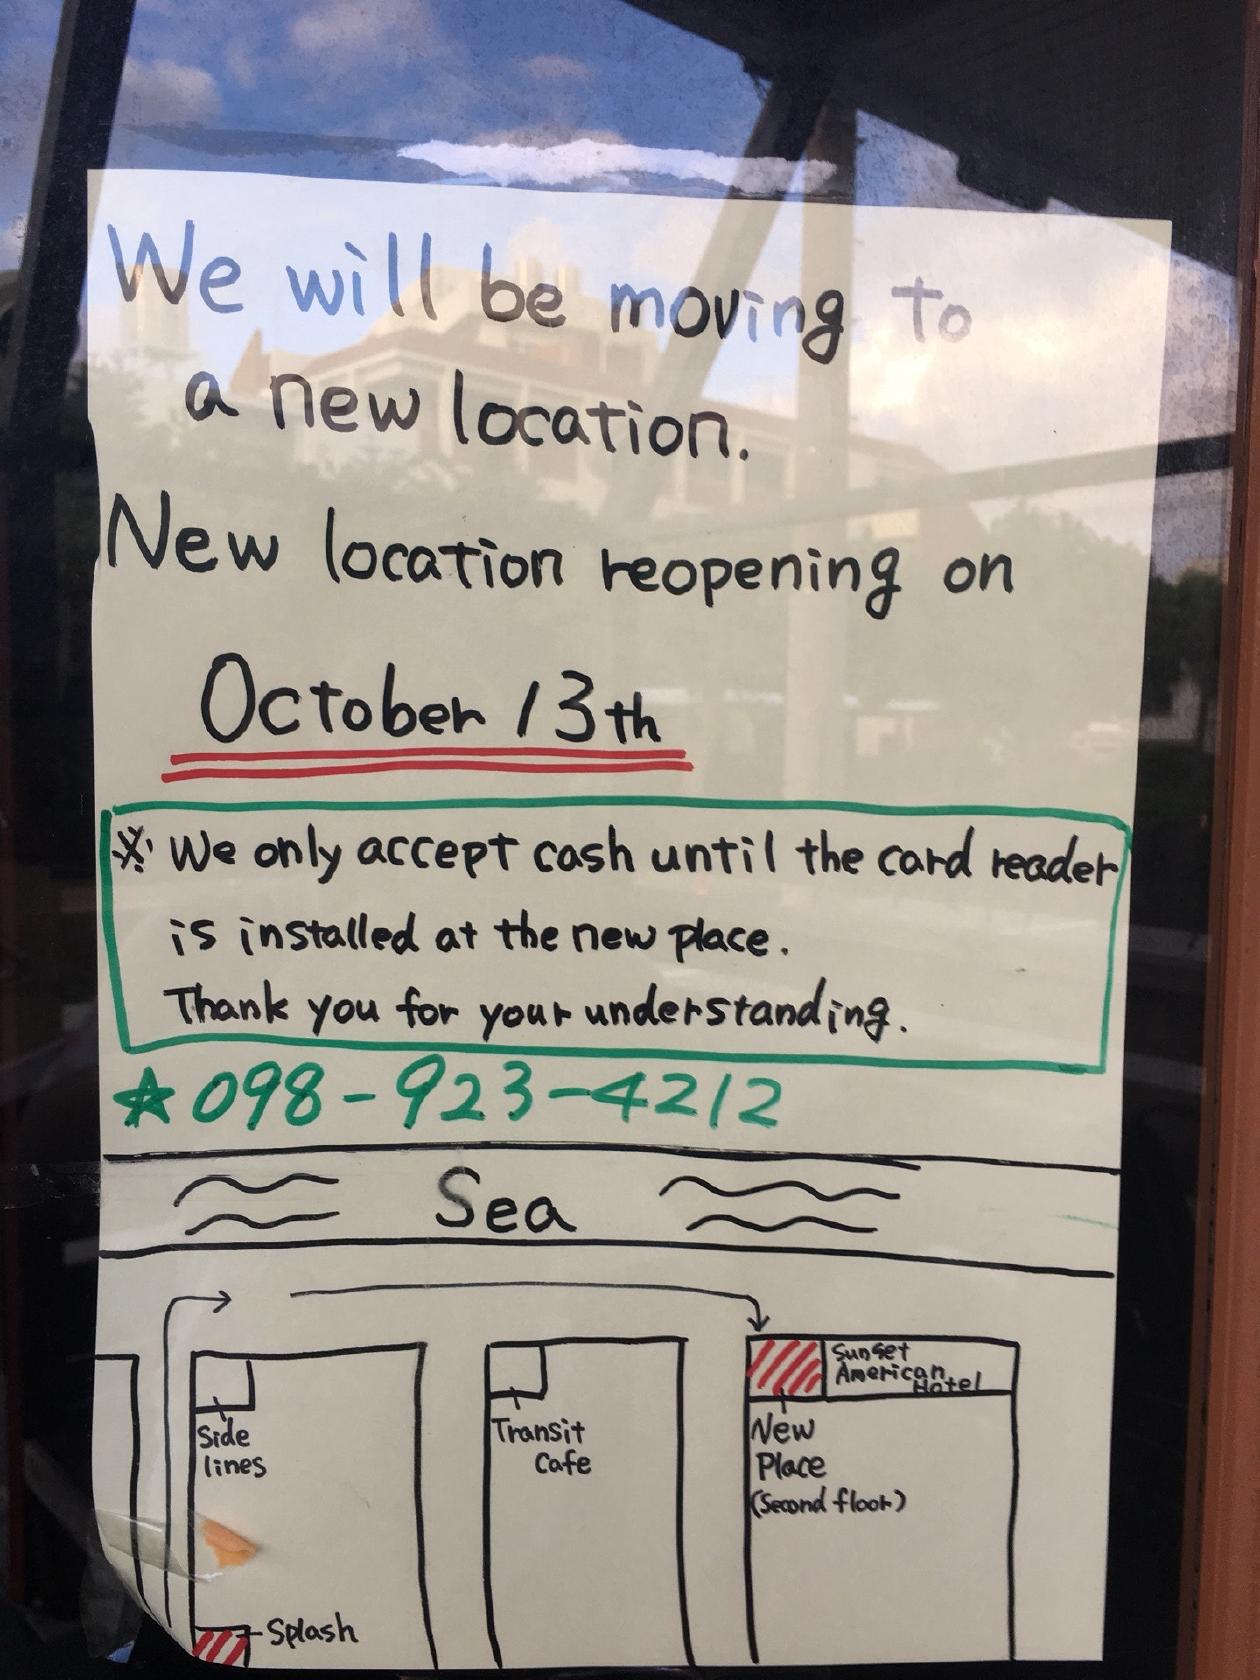 We will be moving to
a new location.
New location reopening on
October 13th
※ We only accept cash until the card reader
is installed at the new place.
Thank you for your understanding.
☆ 098-923-4212
Sea
Side
lines
Transit
Cafe
Sunset
American
Hotel
New
Place
(Second floor)
Splash